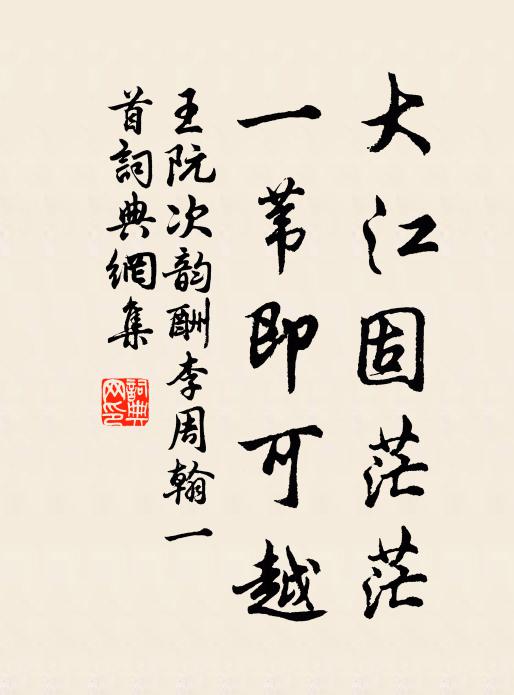 大江固茫茫
一苇即可越
王阮次韵酬李周翰一
首詞典網集
詞典
网印